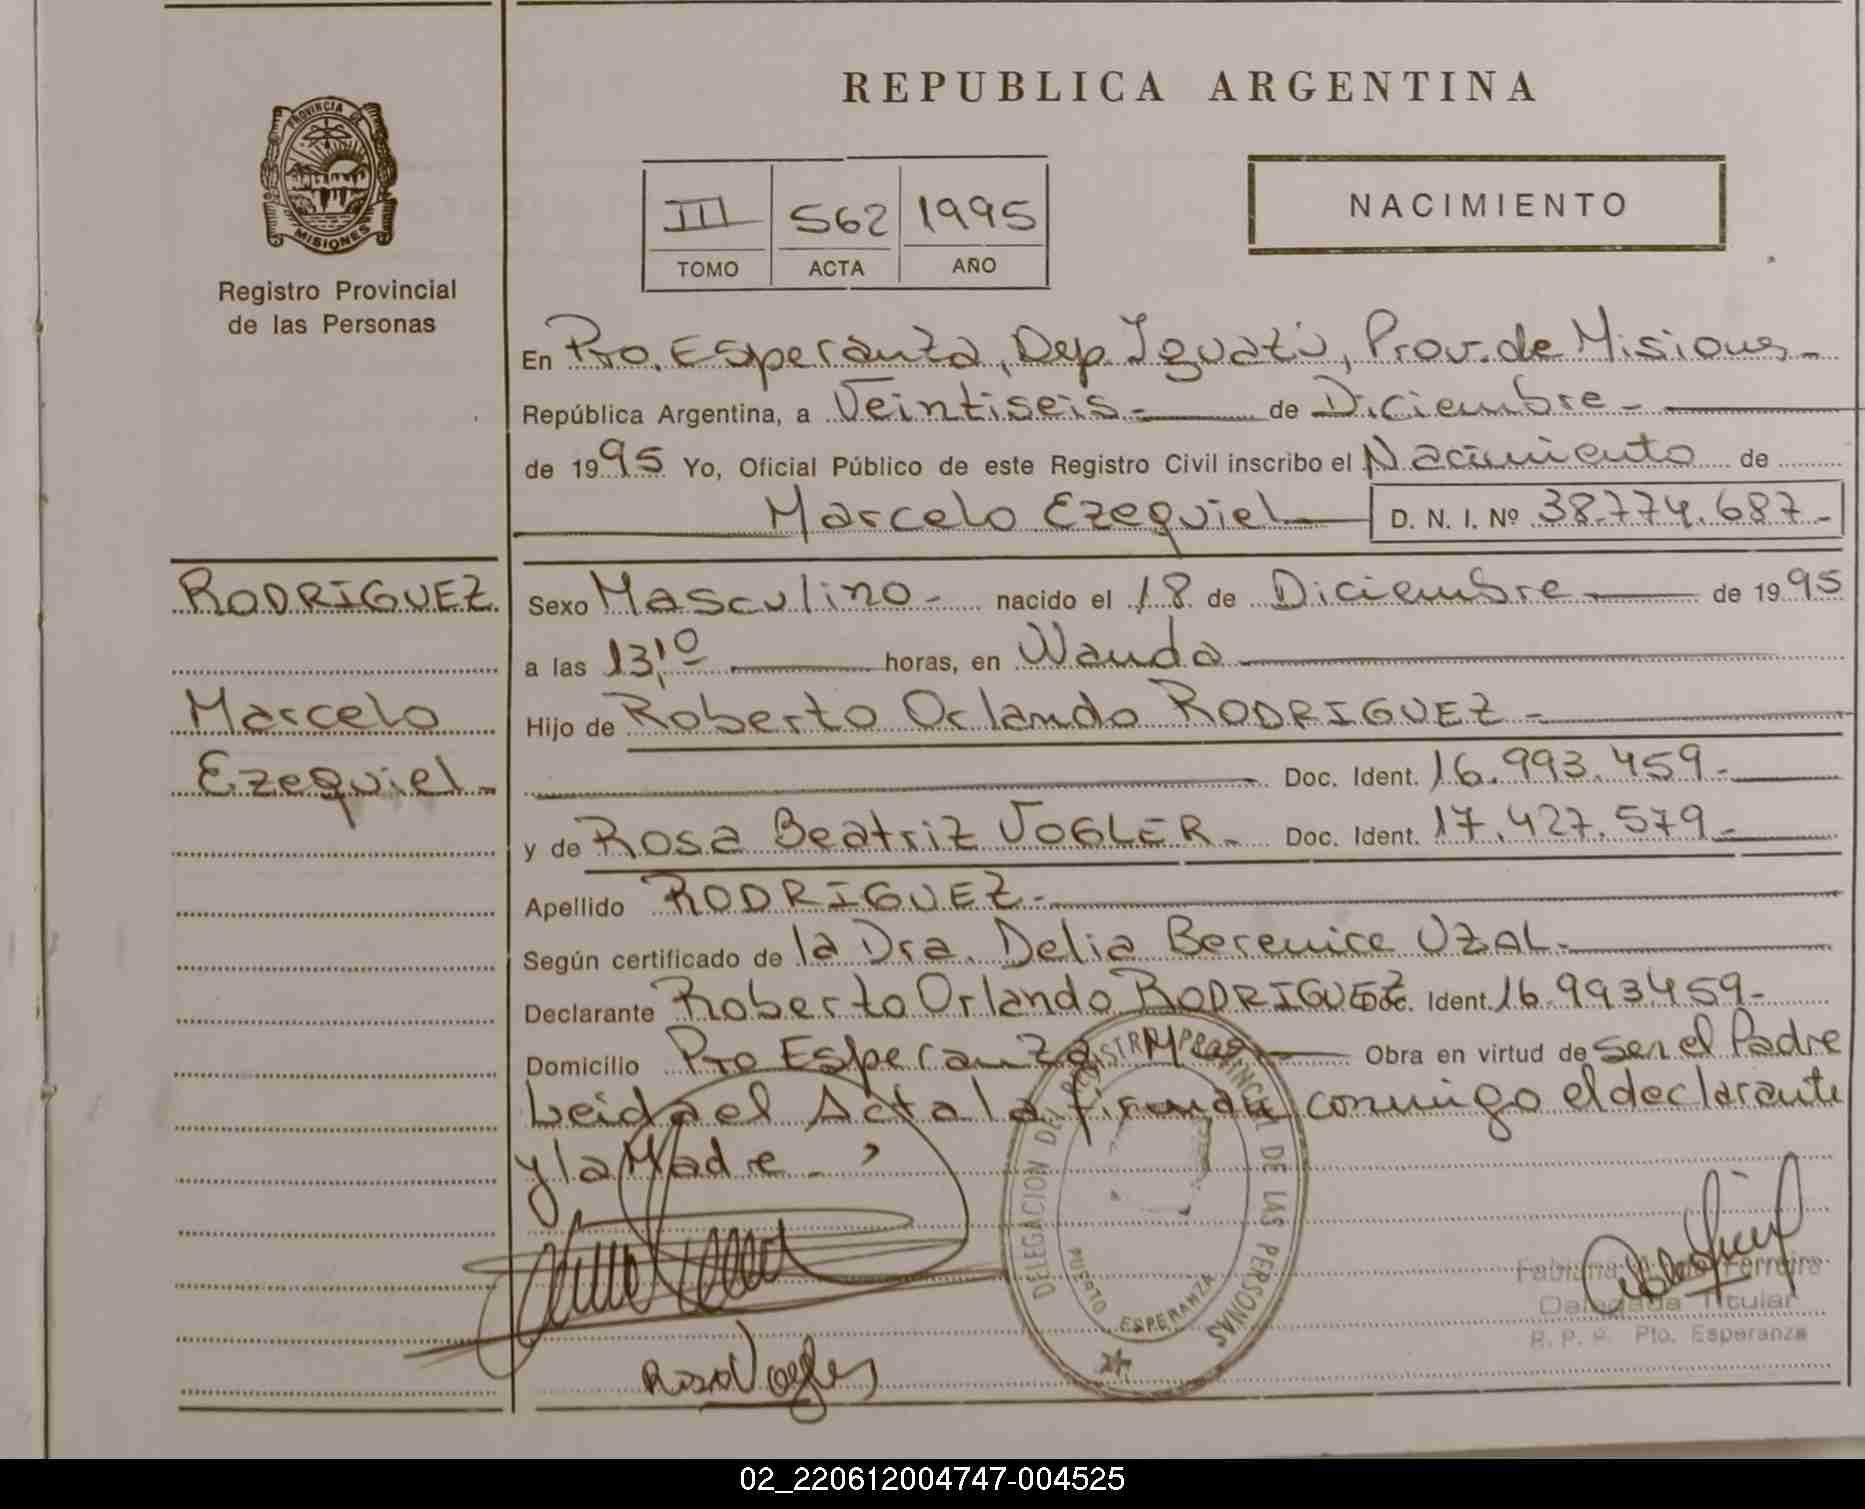 REPUBLICA ARGENTINA
PROVINCIA DE
MISIONES
Registro Provincial
de las Personas
III 562 1995
TOMO ACTA AÑO
NACIMIENTO
En Pto. Esperanza, Dep. Iguazú, Prov. de Misiones -
República Argentina, a Veintiseis - de Diciembre -
de 1995 Yo, Oficial Público de este Registro Civil inscribo el Nacimiento de
Marcelo Ezequiel D. N. I. Nº 38.774.687 -
RODRIGUEZ
Marcelo
Ezequiel -
Sexo Masculino - nacido el 18 de Diciembre de 1995
a las 13,10 horas, en Wanda
Hijo de Roberto Orlando RODRIGUEZ -
Doc. Ident. 16.993.459 -
y de Rosa Beatriz VOGLER - Doc. Ident. 17.427.579 -
Apellido RODRIGUEZ -
Según certificado de la Dra. Delia Berenice UZAL -
Declarante Roberto Orlando RODRIGUEZ Doc. Ident. 16.993459 -
Domicilio Pto Esperanza Mnes. Obra en virtud de ser el Padre
Leida el Acta la firman conmigo el declarante
y la Madre -
DELEGACION DEL REGISTRO PROVINCIAL DE LAS PERSONAS
PUERTO ESPERANZA
Rosa Vogler
Fabiana Ferreira
Delegada Titular
R. P. P. Pto. Esperanza
02_220612004747-004525